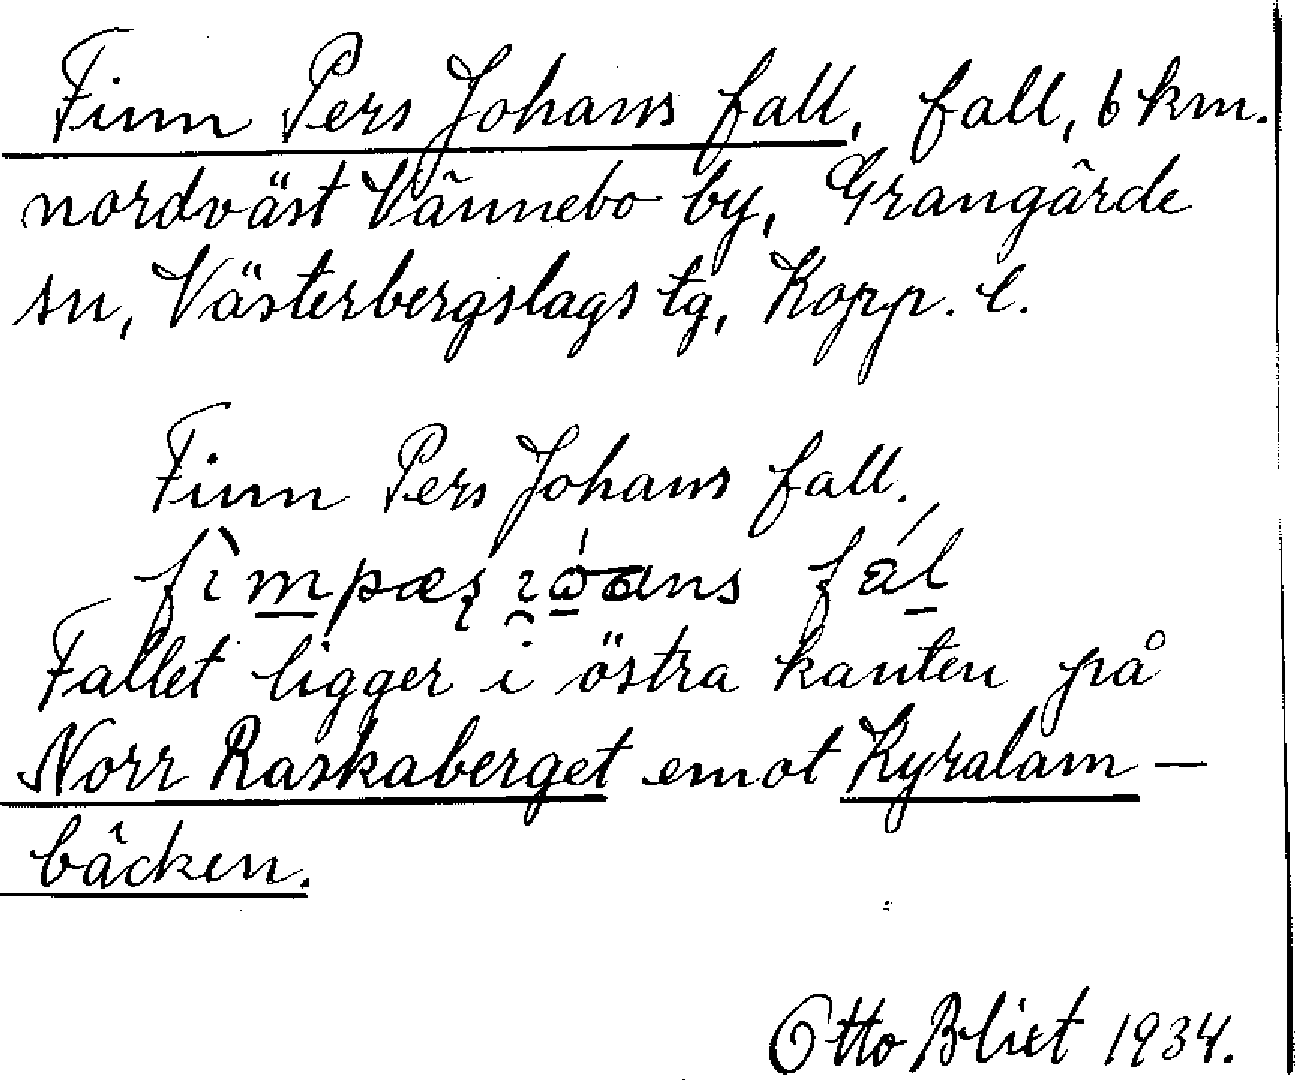 Finn Pers Johans fall, fall, 6 km.
nordväst Vännebo by, Grangärde
sn, Västerbergslags tg, Kopp. l.
Finn Pers Johans fall.
Fallet ligger i östra kanten på
Norr Raskaberget emot Kyralam-
bäcken.
Otto Blixt 1934.